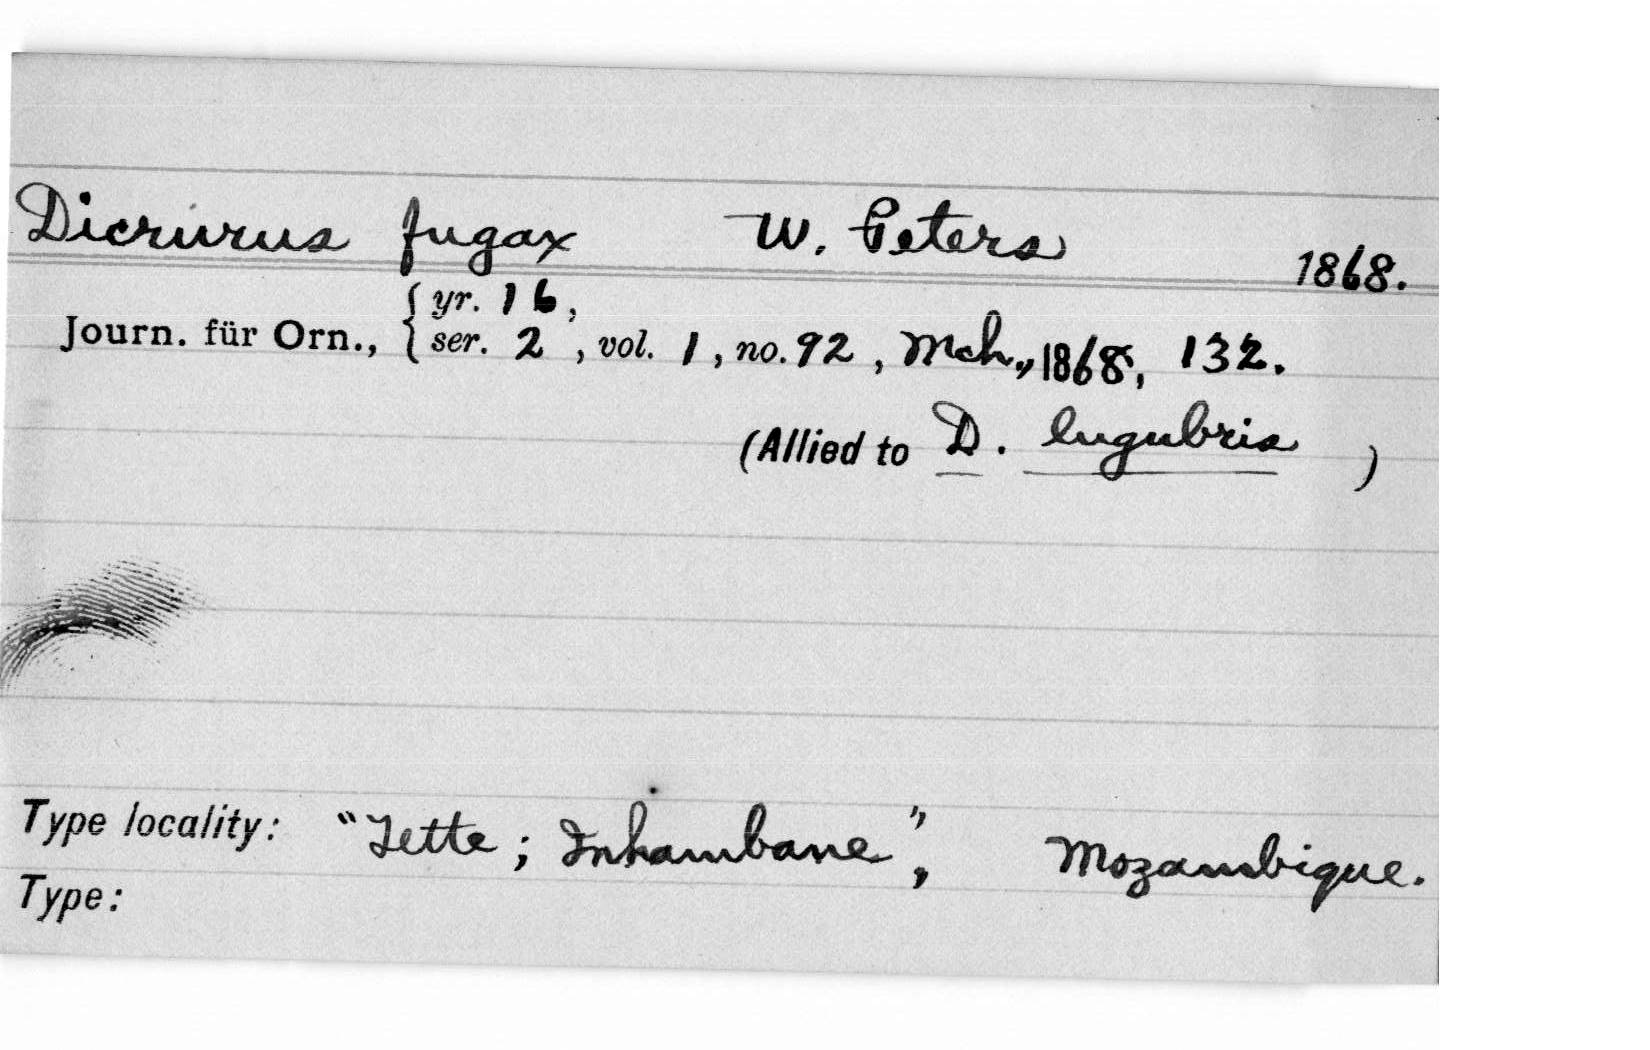 Dicrurus fugax W. Peters 1868.
yr. 16,
Journ. für Orn., ser. 2, vol. 1, no. 92, Mch., 1868, 132.
(Allied to D. lugubris)
Type locality: "Tette; Inhambane", Mozambique.
Type: